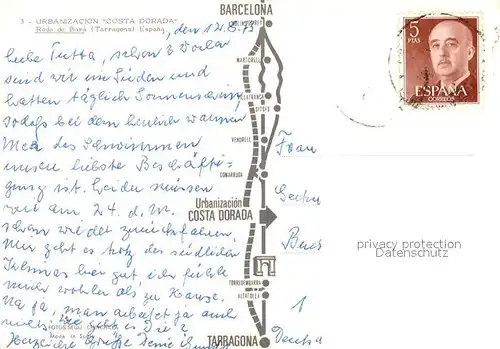 3 - URBANIZACIÓN "COSTA DORADA"
Roda de Bará (Tarragona) España
, den 12.8.73
liebe Jutta, schon 3 Wochen
sind wir im Süden und
hatten täglich Sonnenschein,
sodaß bei dem herrlich warmen
Meer das Schwimmen
unsere liebste Beschäfti-
gung ist. Leider müssen
wir am 24. d. M.
schon wieder zurückfahren.
Mir geht es trotz des südlichen
Klimas hier gut, ich fühle
mich wohler als zu Hause.
Na ja, man arbeitet ja auch
nicht. Wie geht es Dir?
Herzliche Grüße Deine
BARCELONA
MARTORELL
VILLAFRANCA
SITGES
VENDRELL
COMARRUGA
Urbanización
COSTA DORADA
TORREDEMBARRA
ALTAFULLA
TARRAGONA
Made in Spain
5
PTAS
ESPAÑA
CORREOS
Frau
1
privacy protection
Datenschutz